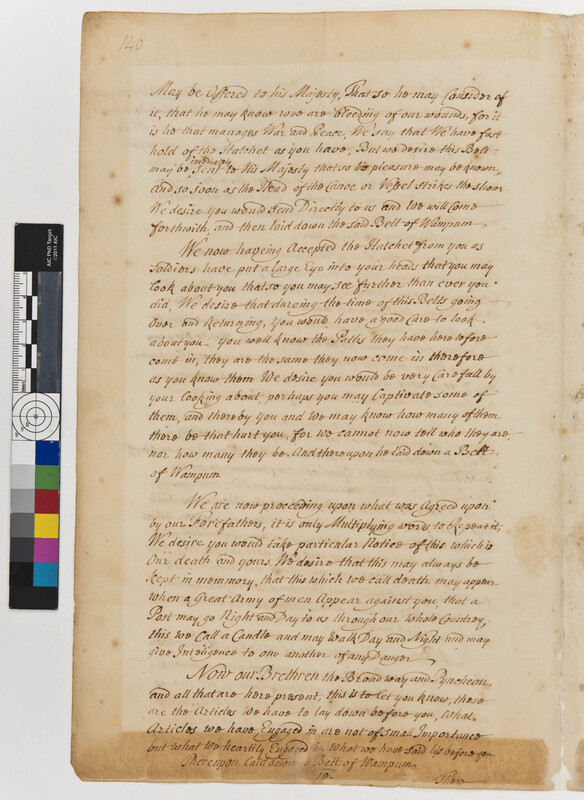 140
May be Offered to his Majesty, That so he may Consider of
it, that he may know wee are bleeding of our wounds, for it
is he that manages War and Peace, We say that We have fast
hold of the Hatchet as you have, But we desire this Belt
imediately
may be Sent to His Majesty that so his pleasure may be known,
and so soon as the Head of the Canoe or Vessel strikes the shoar
We desire you would send Directly to us and We will Come
forthwith, and then laid down the said Belt of Wampum
We now haveing Accepted the Hatchet from you as
Soldiers have put a Large Eye into your heads that you may
look about you that so you may see further than ever you
did, We desire that dureing the time of this Belts going
Over and Returning, You would have a good Care to look
about you you well know the Paths they have heretofore
come in, they are the same they now come in therefore
as you know them We desire you would be very Carefull by
your Looking about, perhaps you may Captivate some of
them, and thereby You and We may know how many of them
there be that hurt you, for we cannot now tell who they are,
nor how many they be. And thereupon he laid down a Belt
of Wampum
We are now proceeding upon what was Agreed upon
by our Forefathers, it is only Multiplying words to Repeat it,
We desire you would take particular Notice of this which is
Our death and yours We desire that this may always be
kept in memmory, that this which we call death may appear
when a Great Army of men Appear against you, that a
Post may go Night and Day to us through our whole Countrey,
this we Call a Candle and may Walk Day and Night and may
give Intelligence to one another of any Danger
Now our Brethren the Broad way and Pyncheon
and all that are here present, this is to let you know, these
are the Articles We have to lay down before you, What
Articles we have Engaged in are not of small Importance
but what We heartily Engaged what we have said lys before you
Thereupon Laid down a Belt of Wampum
AIC PhD Target